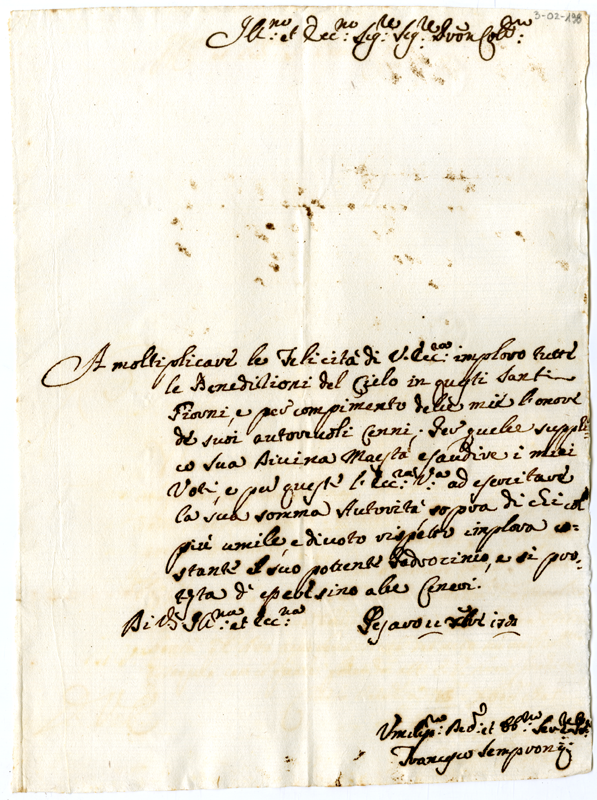 3-02-198
Ill.mo et Ecc.mo Sig.re Sig.re P.ron Col.mo
A moltiplicare le Felicità di V. Ecc.za imploro tutte
le Beneditioni del Cielo in questi Santi
Giorni, e per compimento delle mie l'onore
de suoi autorevoli Cenni; Per quelle suppli-
co Sua Divina Maestà esaudire i miei
Voti, e per queste l'Ecc.za V.a ad esercitare
la sua somma Autorità sopra di chi col
più umile e divoto rispetto implora co-
stante il suo potente Padrocinio, e si pro-
testa d'essere sino alle Ceneri.
Di V. Ill.ma et Ecc.ma
Pesaro
Umiliss.mo et Ob.mo
Francesco Sempronij